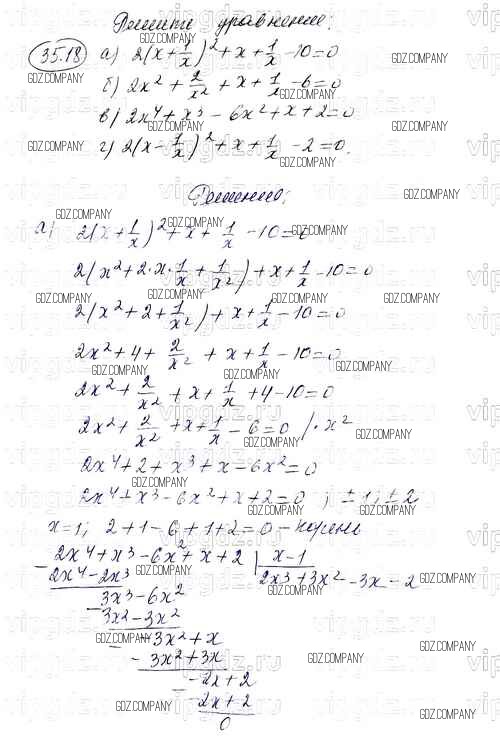 Решите уравнение:
35.18 а) 2(x + 1/x)² + x + 1/x - 10 = 0
б) 2x² + 2/x² + x + 1/x - 6 = 0
в) 2x⁴ + x³ - 6x² + x + 2 = 0
г) 2(x - 1/x)² + x + 1/x - 2 = 0.
Решение:
а) 2(x + 1/x)² + x + 1/x - 10 = 0
2(x² + 2·x·1/x + 1/x²) + x + 1/x - 10 = 0
2(x² + 2 + 1/x²) + x + 1/x - 10 = 0
2x² + 4 + 2/x² + x + 1/x - 10 = 0
2x² + 2/x² + x + 1/x + 4 - 10 = 0
2x² + 2/x² + x + 1/x - 6 = 0 /·x²
2x⁴ + 2 + x³ + x - 6x² = 0
2x⁴ + x³ - 6x² + x + 2 = 0 ; ±1; ±2
x = 1; 2 + 1 - 6 + 1 + 2 = 0 - корень
2x⁴ + x³ - 6x² + x + 2 | x - 1
- 2x⁴ - 2x³ 2x³ + 3x² - 3x - 2
3x³ - 6x²
- 3x² - 3x²
- 3x² + x
- - 3x² + 3x
- 2x + 2
- - 2x + 2
0
GDZ.COMPANY
vipgdz.ru